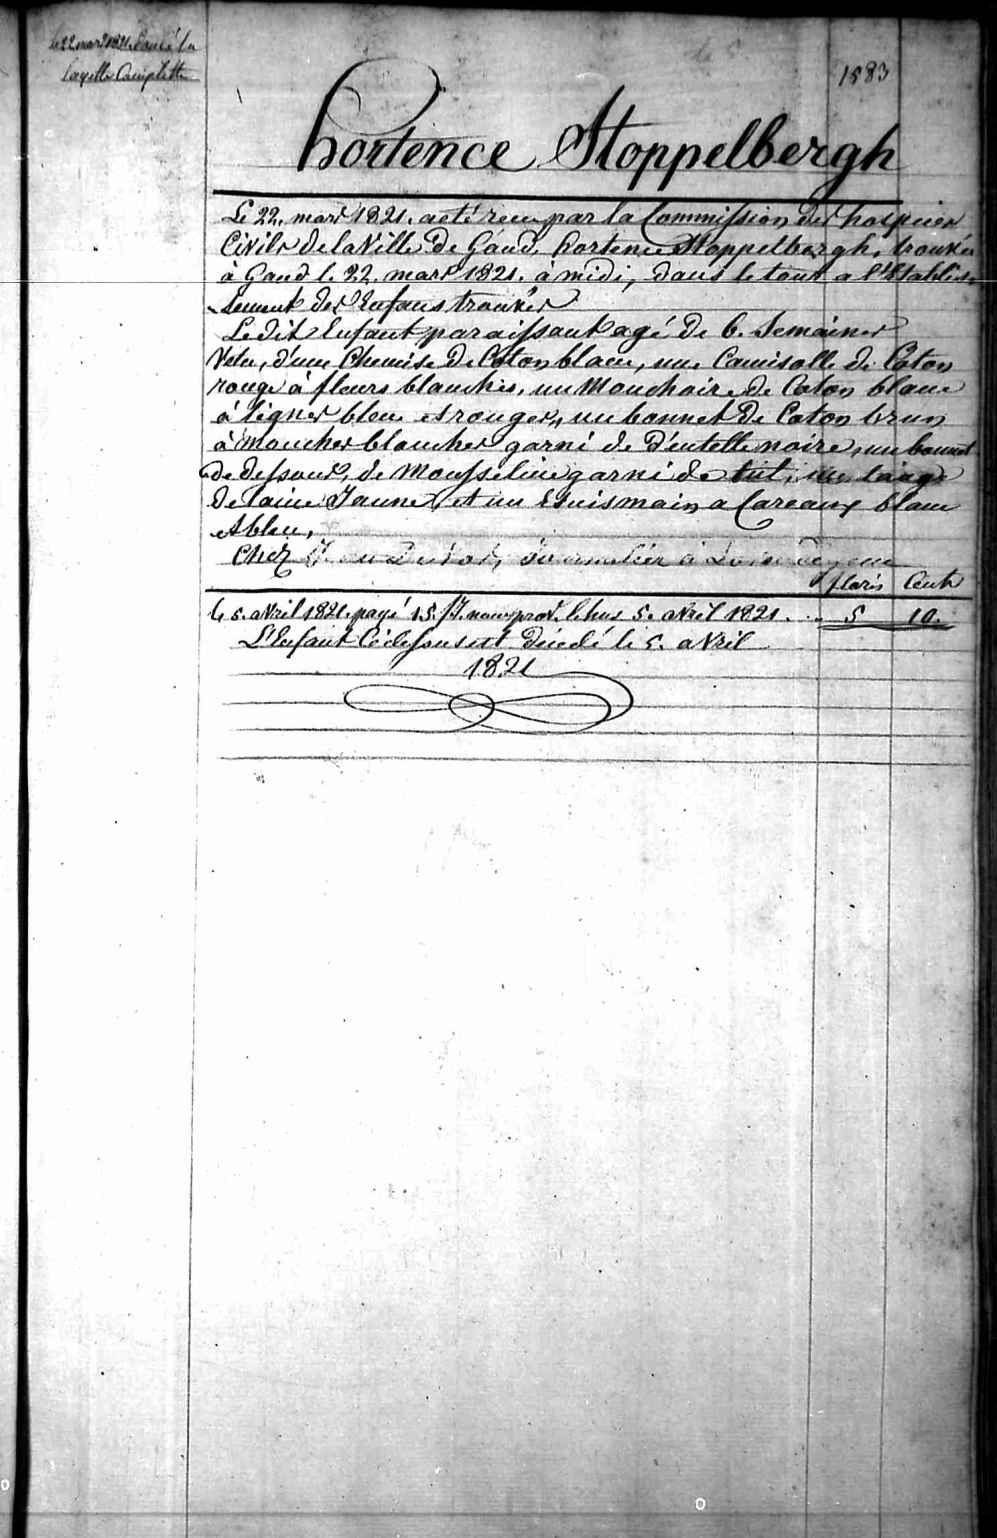 le 22 mars 1821 donné la
layette Complette
1583
hortence Stoppelbergh
Le 22. mars 1821. a eté recu par la Commission des hospices
Civils de la Ville de Gand, hortence Stoppelbergh, trouvée
à Gand le 22. mars 1821. à midi, dans le tour a l'Etablis-
sement des Enfans trouvés
Ledit Enfant paraissant agé de 6. Semaines
Vetu, d'une Chemise de Coton blanc, une Camisolle de Coton
rouge à fleurs blanches, un Mouchoire de Coton blanc
à lignes bleu et rouges, un bonnet de Coton brun
à mouches blanches garni de Dentelle noire, un bonnet
de dessous, de Mousseline garni de tul, un lange
de laine Jaune, et un Essuismain a Careaux blanc
et bleu,
Chez Journalier à
florins Cents
le 5. avril 1821. payé 15. jrs nourr prov. le hus 5. avril 1821. . . 5 10.
L'Enfant Cidessus est Décedé le 5. avril
1821